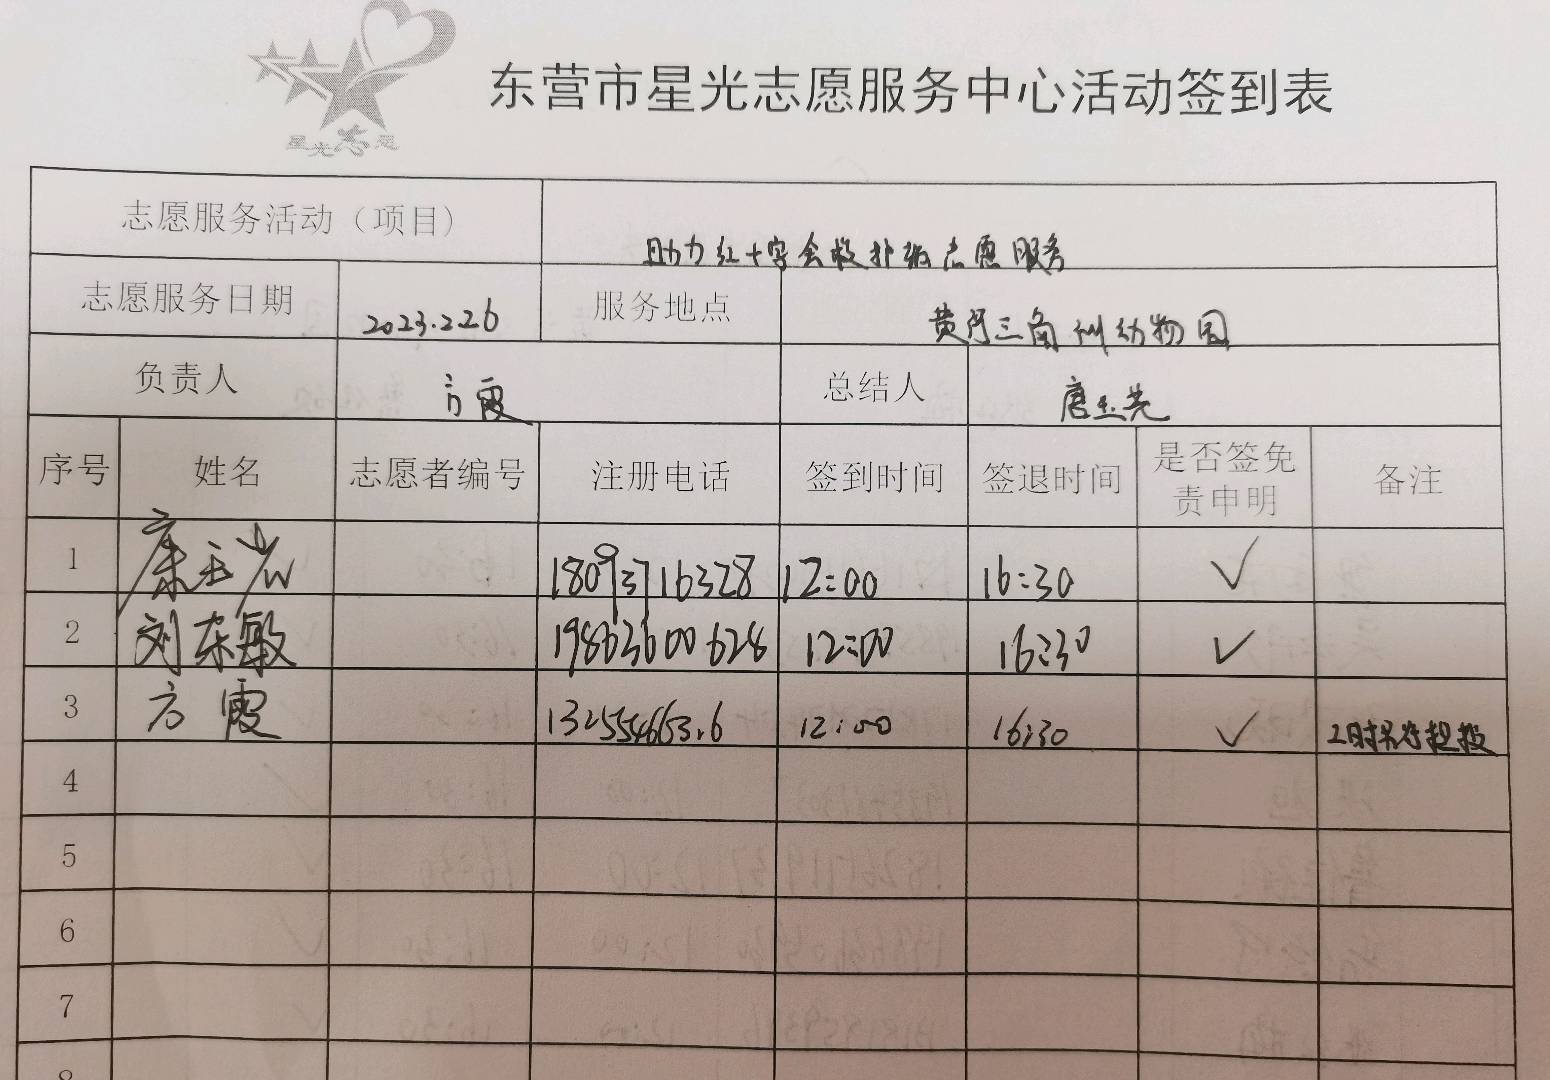 星光志愿
东营市星光志愿服务中心活动签到表
志愿服务活动（项目） 助力红十字会救护站志愿服务
志愿服务日期 2023.2.26 服务地点 黄河三角洲动物园
负责人 方霞 总结人
序号 姓名 志愿者编号 注册电话 签到时间 签退时间 是否签免责申明 备注
1 18093716328 12:00 16:30 ✓
2 刘东敏 19863600628 12:00 16:30 ✓
3 方霞 12:00 16:30 ✓
4
5
6
7
8